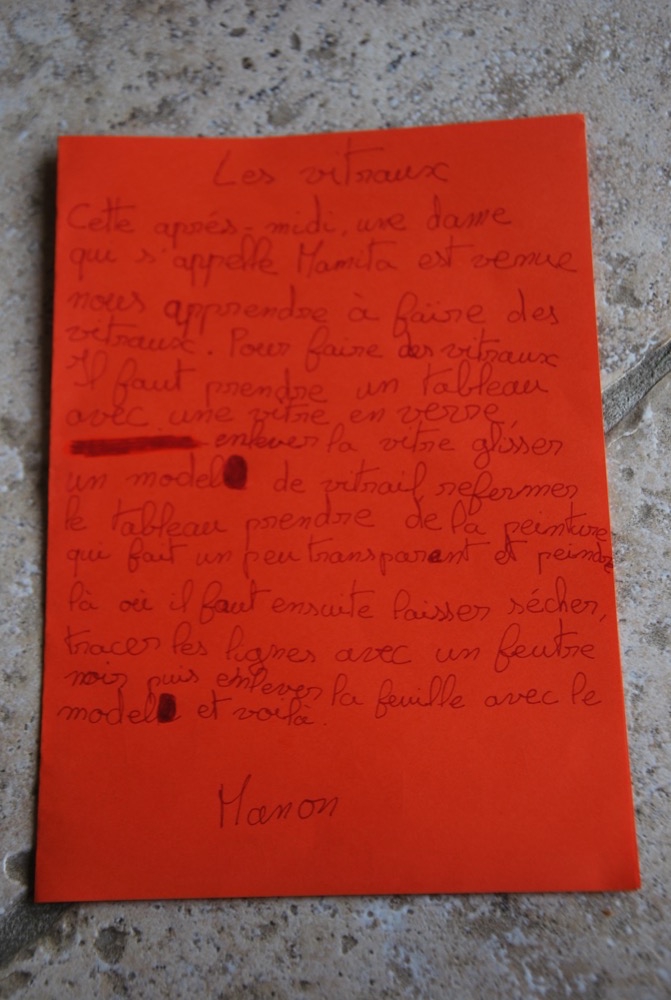 Les vitraux
Cette aprés-midi, une dame
qui s'appelle Mamita est venue
nous apprendre à faire des
vitraux. Pour faire des vitraux
Il faut prendre un tableau
avec une vitre en verre,
enlever la vitre glisser
un model de vitrail refermer
le tableau prendre de la peinture
qui fait un peu transparent et peindre
là où il faut ensuite laisser sécher,
tracer les lignes avec un feutre
noir puis enlever la feuille avec le
model et voilà.
Manon